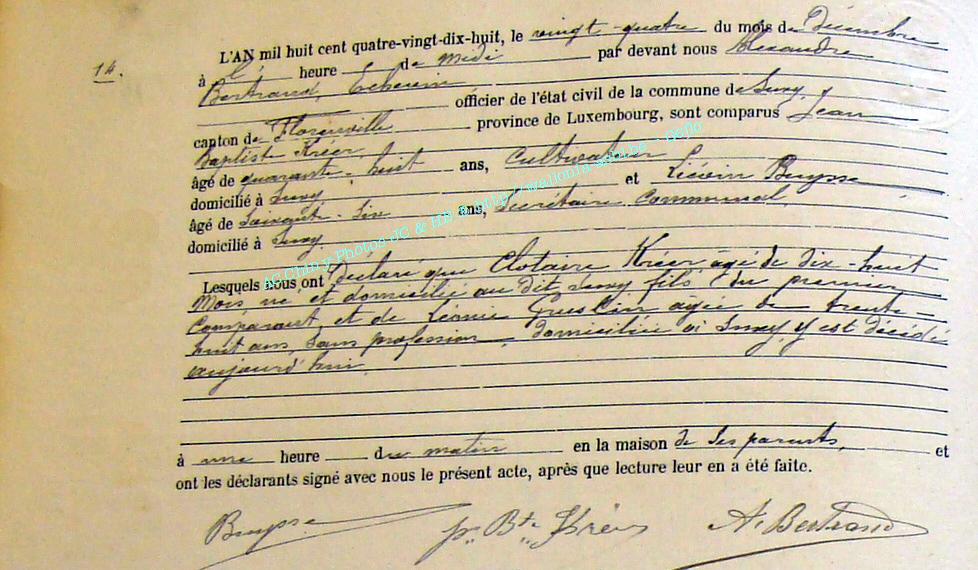 L'AN mil huit cent quatre-vingt-dix-huit, le vingt-quatre du mois de Décembre
14.
à l' heure de midi par devant nous Alexandre
Bertrand, Echevin officier de l'état civil de la commune de Suxy,
canton de Florenville province de Luxembourg, sont comparus Jean
Baptiste Kréer,
âgé de quarante-huit ans, Cultivateur
domicilié à Suxy et Buysse
âgé de soixante-six ans, Secrétaire Communal,
domicilié à Suxy.
Lesquels nous ont déclaré que Clotaire Kréer âgé de dix-huit
mois né et domicilié au dit Suxy fils du premier
Comparant, et de Léonie âgée de trente-
huit ans, sans profession, domiciliée à Suxy, y est décédé
aujourd'hui.
à une heure du matin en la maison de ses parents, et
ont les déclarants signé avec nous le présent acte, après que lecture leur en a été faite.
Buysse Bte Kréer A. Bertrand
AG Chiny Photos JC & HB